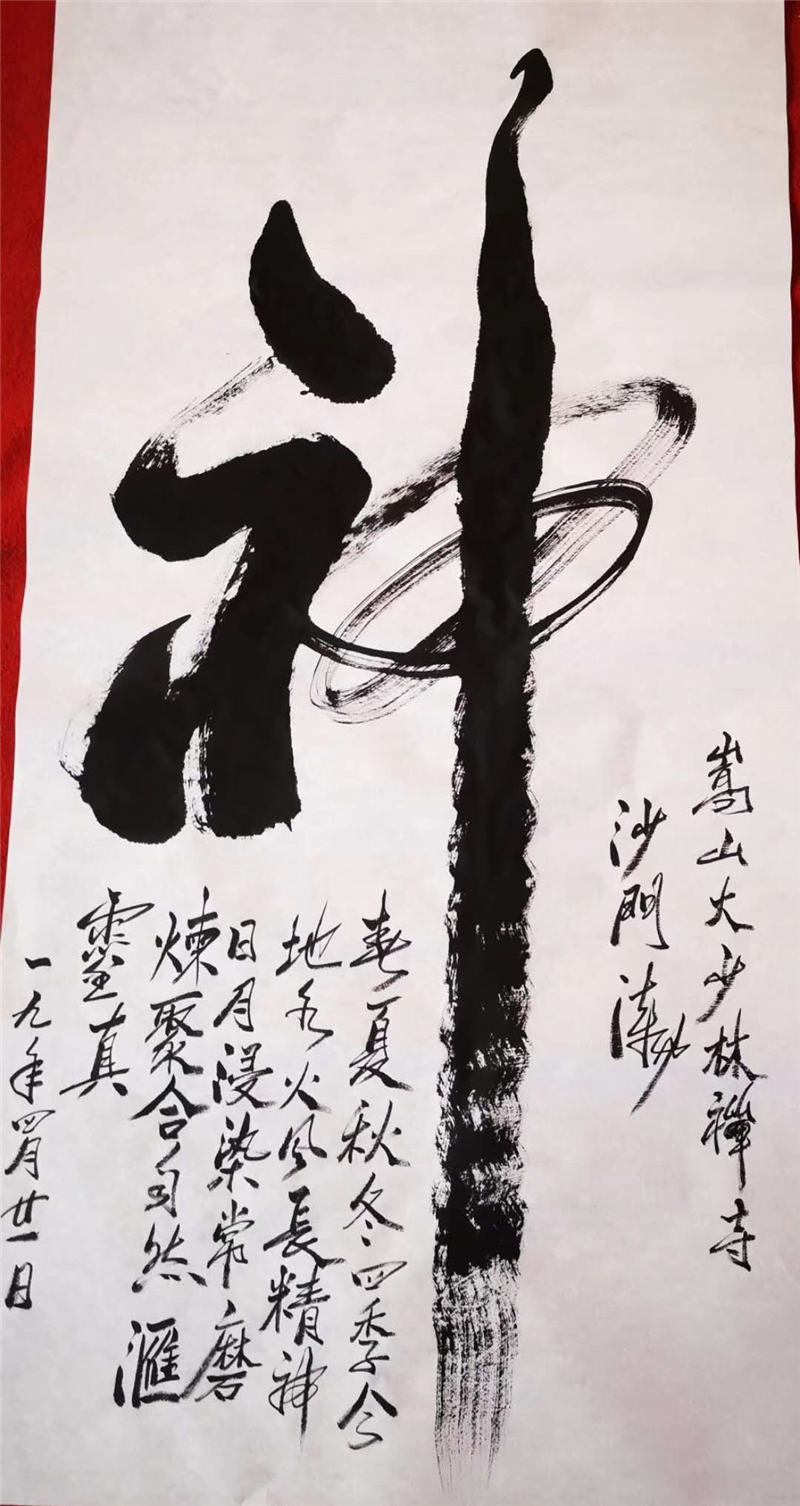 神
嵩山大少林禪寺
沙門
春夏秋冬四季分
地水火風長精神
日月浸染常磨
煉聚合自然滙
靈真
一九年四月廿一日